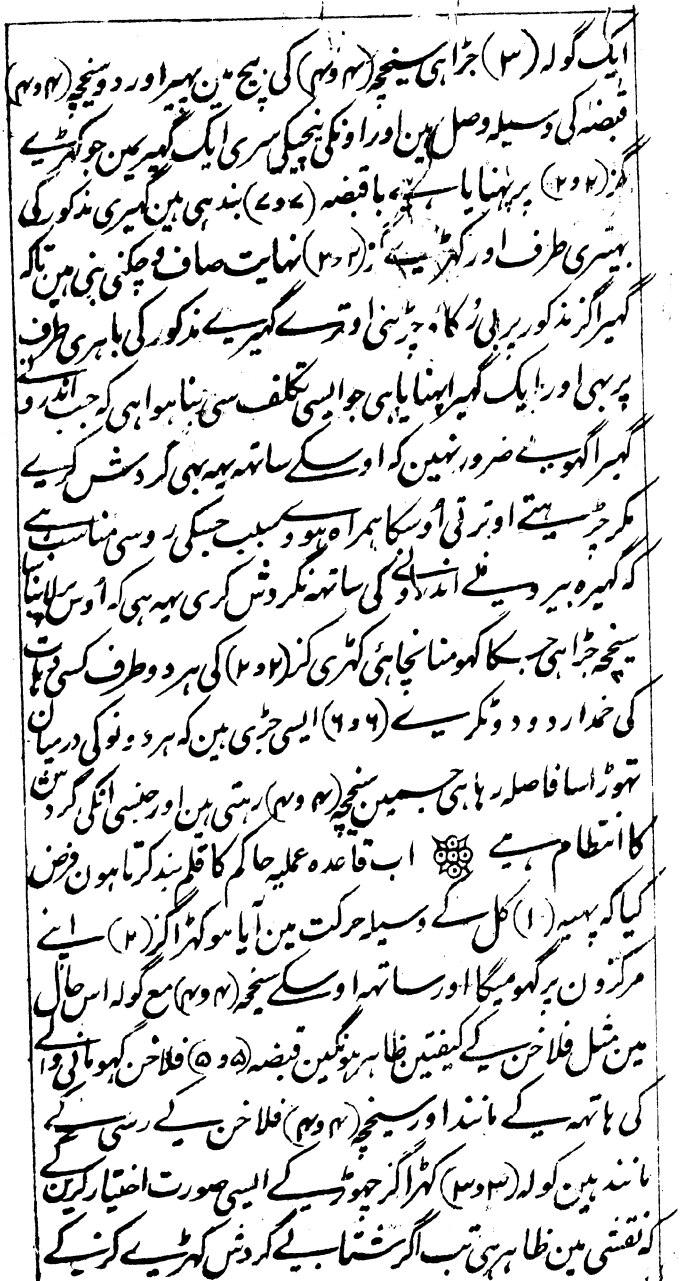 ایک گولہ (۳) جڑا ہی سینچہ (۴ و ۴) کی بیچ مین پہیر اور دو سیخچہ (۴ و ۴)
قبضہ کی وسیلہ وصل ہین اور اونکی نیچیکی سری ایک گہیر یمن جو کہڑیے
گز (۲ و ۲) پر پہنایا ہے باقبضہ (۷ و ۷) بندہی ہین گہیری مذکور کی
بہیتری طرف اور کہڑیے گز (۲ و ۲) نہایت صاف و چکنی بنی ہین تاکہ
گہیرا گز مذکور پر بی رکاؤ چڑہنی اوترے گہیریے مذکور کی باہری طرف
پر بہی اور ایک گہیرا پہنایا ہی جو ایسی تکلف سی بنا ہوا ہی کہ جب اندرونے
گہیرا گہومے ضرور نہین کہ اوسکے ساتہہ یہہ بہی گردش کریے
مگر چڑہتے اوترتی اوسکا ہمراہ ہووے سبب جسکی روسی مناسب ہے
کہ گہیرہ بیرونے اندرونے کی ساتہہ نگردش کری یہہ ہی کہ اوس پر لانبا
سینچہ جڑا ہی جسکا گہومنا نچاہئی کہڑی گز (۲ و ۲) کی ہر دو طرف کسی دہات
کی خمدار دو دو ٹکریے (۶ و ۶) ایسی جڑی ہین کہ ہر دونو کی درمیان
تہوڑا سا فاصلہ رہا ہی جسمین سنیچہ (۴ و ۴) رہتی ہین اور جنسی انکی گردش
کا انتظام ہیے اب قاعدہ عملیہ حاکم کا قلم بند کرتا ہون فرض
کیا کہ پہیہ (۱) کل کے وسیلہ حرکت مین آیا ہو کہڑا گز (۲) اپنے
مرکزون پر گہومیگا اور ساتہہ اوسکے سیخچہ (۴ و ۴) مع گولہ اس حال
مین مثل فلاخن کے کیفیتین ظاہر ہونگین قبضہ (۵ و ۵) فلاخن گہومانی والے
کی ہاتہہ کے مانند اور سیخچہ (۴ و ۴) فلاخن کے رسی کے
مانند ہین گولہ (۳ و ۳) کہڑا گز چہوڑ کے ایسی صورت اختیار کرین گے
کہ نقشی مین ظاہر ہی تب اگر شتابیے گردش کہڑیے گز کے